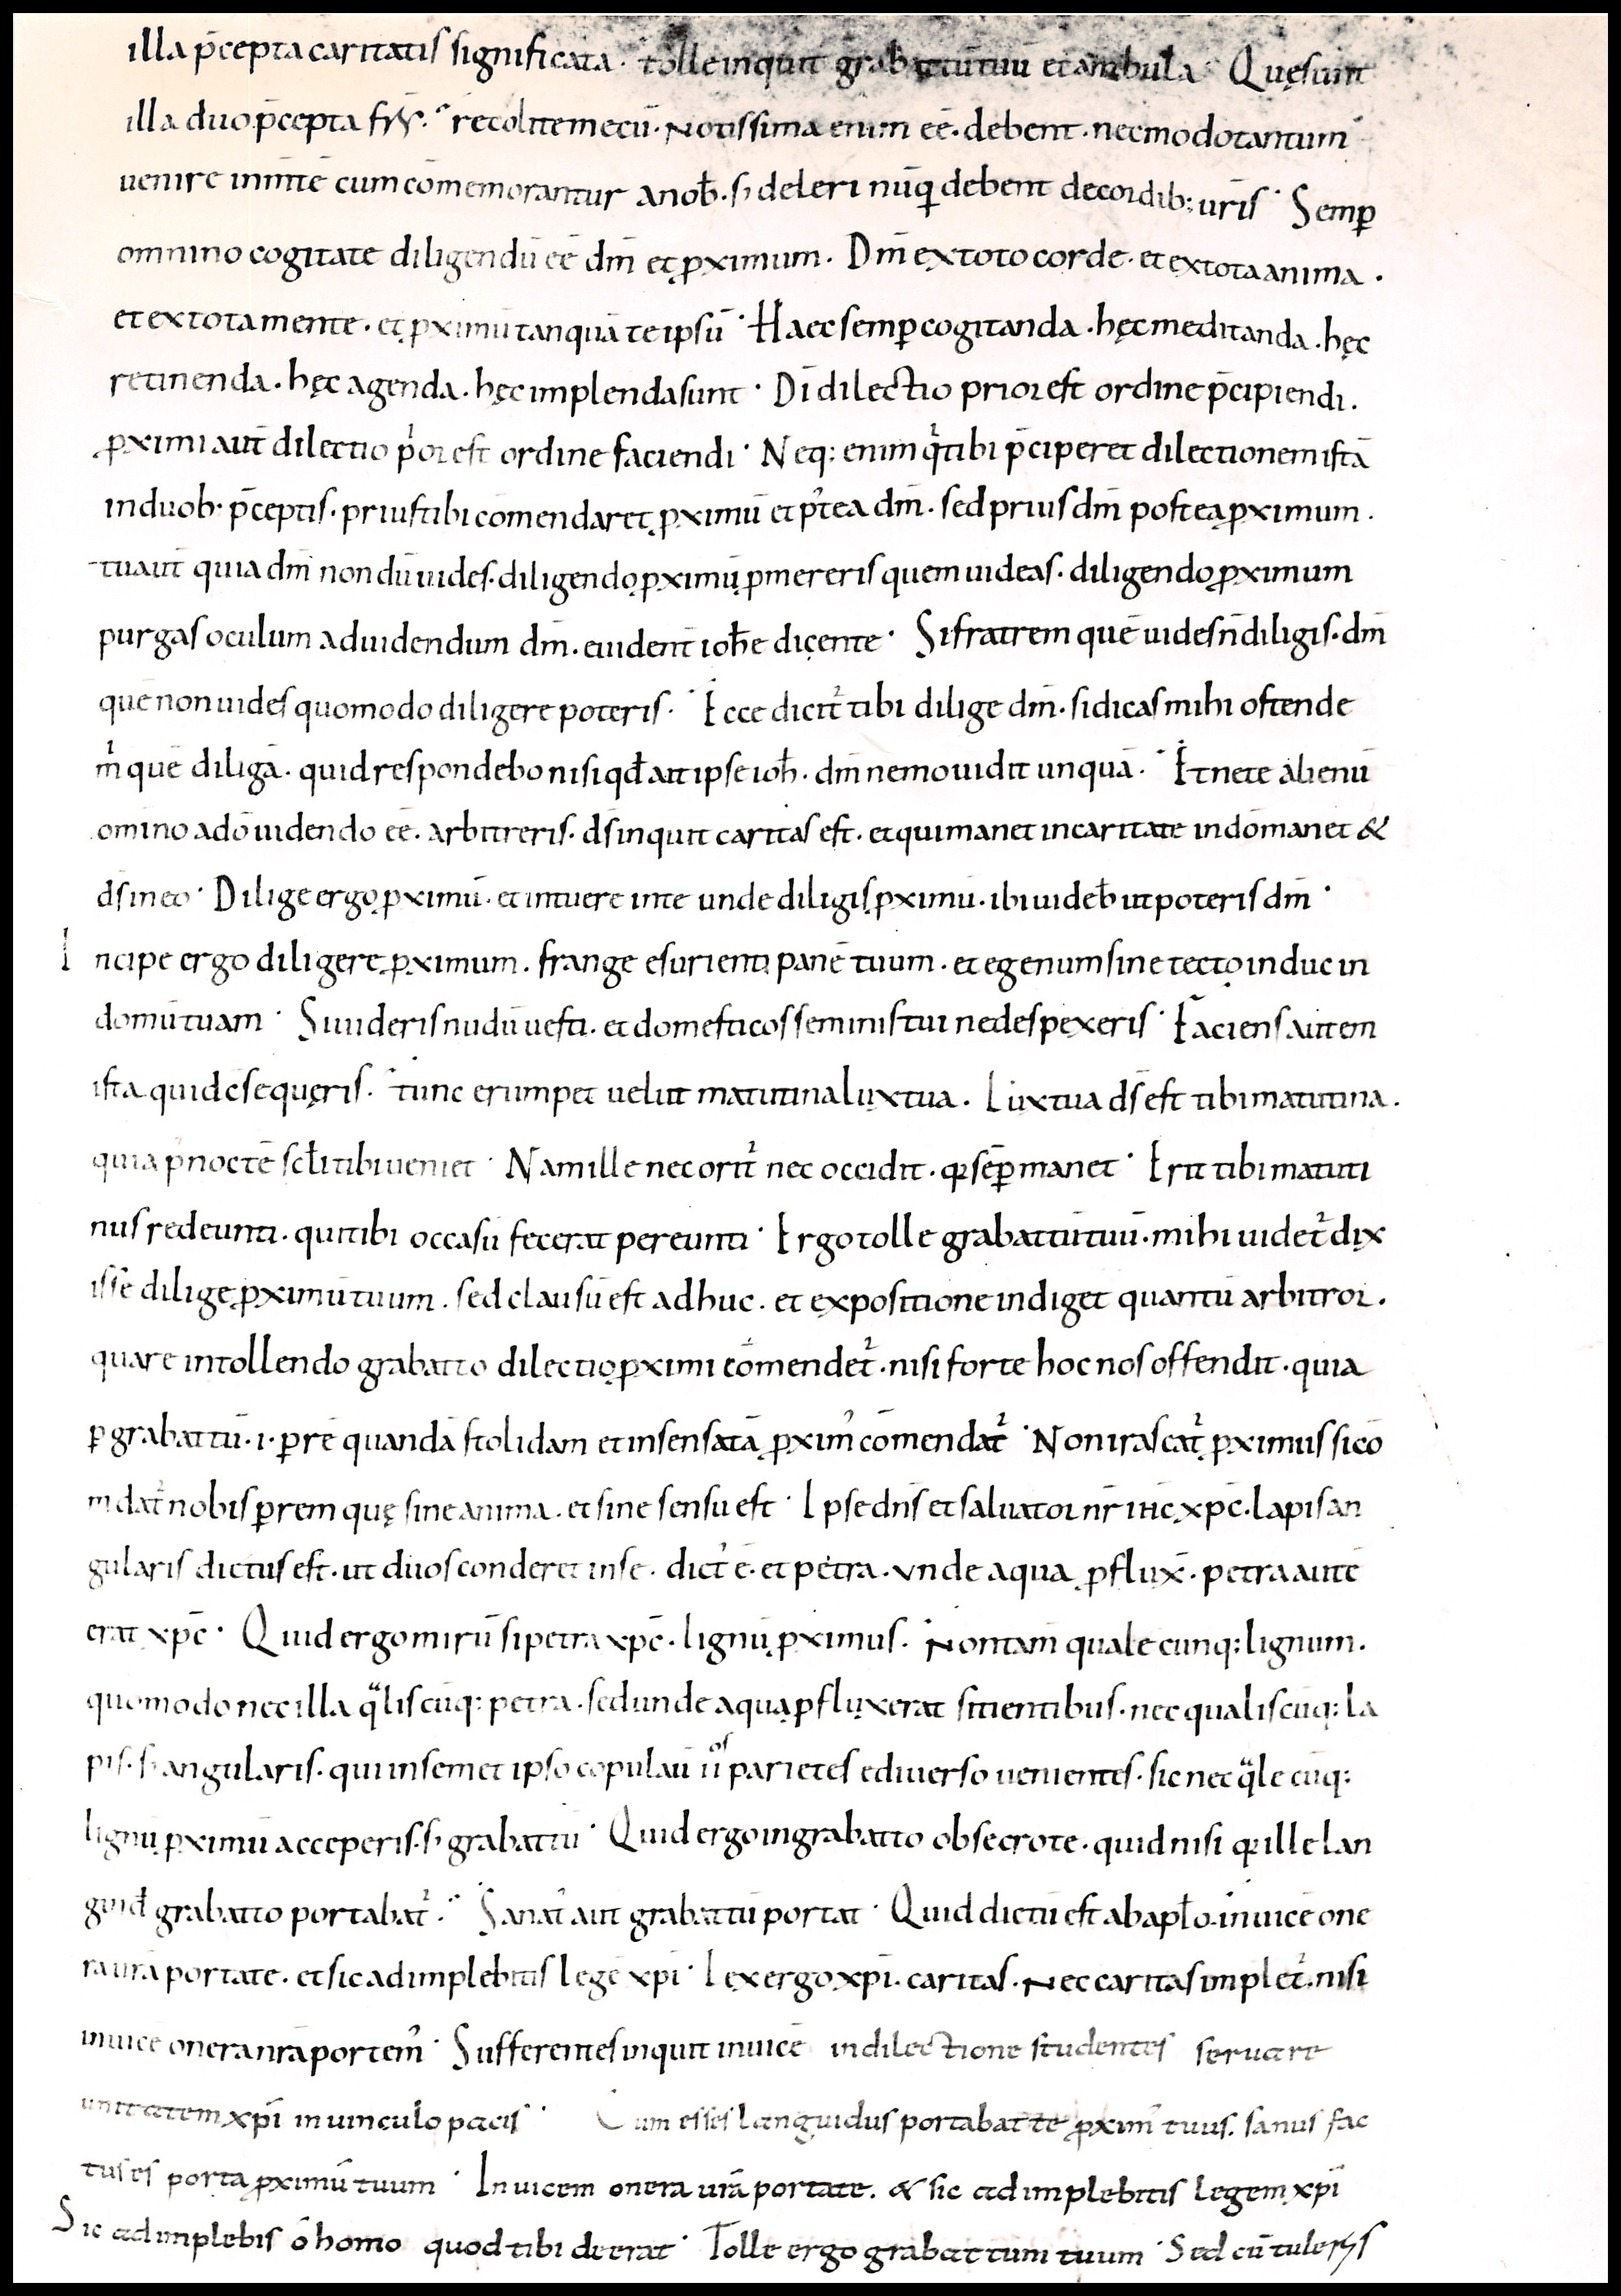 illa p̄cepta caritatis significata · tolle inquit grabattūtuū et ambula · Quęsunt
illa duo p̄cepta frs̄. recolite mecū · Notissima enim eē · debent · nec modo tantum
uenire inm̄tē cum cōmemorantur a nob̄ · s; deleri nūq̄ debent de cordib; ur̄is · Semp̄
omnino cogitate diligendū eē dm̄ et ꝓximum · Dm̄ ex toto corde · et ex tota anima ·
et ex tota mente · et ꝓximū tanquā te ipsū · Haec semꝑ cogitanda · hęc meditanda · hęc
retinenda · hęc agenda · hęc implenda sunt · Dī dilectio prior est ordine p̄cipiendi ·
ꝓximi aut̄ dilectio pͥor est ordine faciendi · Neq: enim qͥ tibi p̄ciperet dilectionem istā
in duob· p̄ceptis · prius tibi cōmendaret ꝓximū et p᾽tea dm̄ · sed prius dm̄ postea ꝓximum ·
tu aut̄ quia dm̄ nondū uides · diligendo ꝓximū ꝓmereris quem uideas · diligendo ꝓximum
purgas oculum ad uidendum dm̄ · euident̄ ioħe dicente · Si fratrem quē uides n̄ diligis · dm̄
quē non uides quomodo diligere poteris · Ecce dicit᾽ tibi dilige dm̄ · si dicas mihi ostende
mͥ quē diligā · quid respondebo nisi qđ ait ipse ioħ · dm̄ nemo uidit unquā · Et ne te alienū
omino a dō uidendo eē · arbitreris · ds̄ inquit caritas est · et qui manet in caritate in dō manet &
ds̄ in eo · Dilige ergo ꝓximū · et intuere in te unde diligis ꝓximū · ibi uideb̄ ut poteris dm̄ ·
Incipe ergo diligere ꝓximum · frange esurienti panē tuum · et egenum sine tecto induc in
domū tuam · Si uideris nudū uesti · et domesticos seminis tui ne despexeris · Faciens autem
ista quid ɔsequeris · tunc erumpet uelut matutina lux tua · Lux tua ds̄ est tibi matutina ·
quia p᾽ noctē scłi tibi ueniet · Nam ille nec orit᾽ nec occidit · qr semp̄ manet · Erit tibi matuti
nus redeunti · qui tibi occasū fecerat pereunti · Ergo tolle grabattū tuū · mihi uidet᾽ dix
isse dilige ꝓximū tuum · sed clausū est adhuc · et expositione indiget quantū arbitror ·
quare in tollendo grabatto dilectio ꝓximi cōmendet᾽ · nisi forte hoc nos offendit · quia
ꝑ grabattū · i · ꝑ rē quandā stolidam et insensatā ꝓxim᾽ cōmendat᾽ · Non irascat᾽ ꝓximus si cō
mdat᾽ nobis ꝑ rem quę sine anima · et sine sensu est · Ipse dn̄s et saluator nr̄ ih̄c xp̄c · lapis an
gularis dictus est · ut duos conderet in se · dict᾽ ē · et petra · unde aqua ꝓflux̄ · petra autē
erat xp̄c · Quid ergo mirū si petra xp̄c · lignū ꝓximus · Non tam̄ qualecunq: lignum ·
quomodo nec illa qᵃliscūq: petra · sed unde aqua ꝓfluxerat sitientibus · nec qualiscūq: la
pis · s; angularis · qui in semet ipso copulau̅ iiᵒˢ parietes e diuerso uenientes · sic nec qᵃlecūq:
lignū ꝓximū acceperis · s; grabattū · Quid ergo in grabatto obsecro te · quid nisi qr ille lan
guid᾽ grabatto portabat᾽ · Sanat᾽ aut̄ grabattū portat · Quid dictū est ab apło · inuicē one
ra ur̄a portate · et sic adimplebitis legē xp̄i · Lex ergo xp̄i · caritas · Nec caritas implet᾽ · nisi
inuicē onera nr̄a portem᾽ · Sufferentes inquit inuicē in dilectione studentes seruare
unitatem xp̄i in uinculo pacis · Cum esses languidus portabat te ꝓxim᾽ tuus · sanus fac
tus es porta ꝓximū tuum · Inuicem onera ur̄a portate · & sic adimplebitis legem xp̄i
Sic adimplebis ō homo quod tibi deerat · Tolle ergo grabattum tuum · Sed cū tuleris